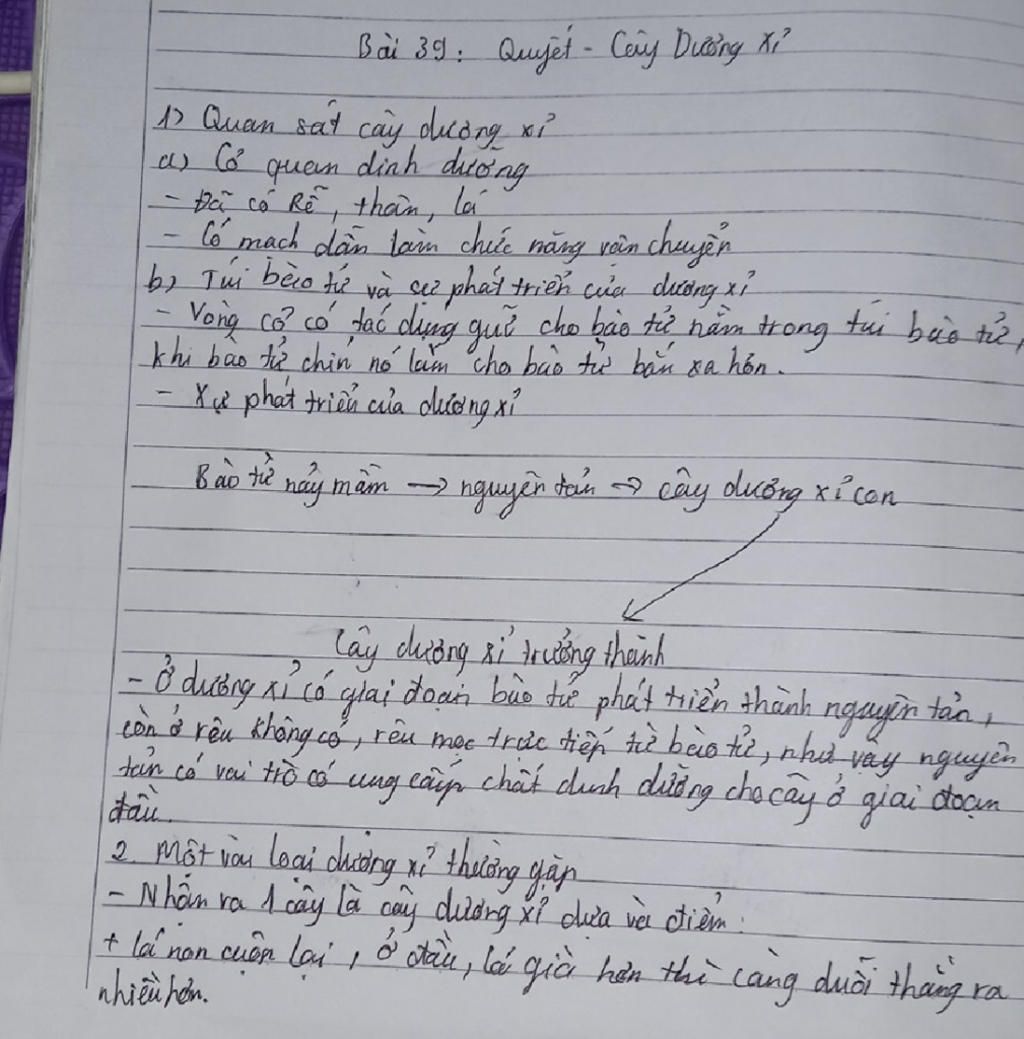 Bài 39: Quyết - Cây Dương Xỉ
1) Quan sát cây dương xỉ
a) Cơ quan dinh dưỡng
- Đã có Rễ, thân, lá
- Có mạch dẫn làm chức năng vân chuyển
b) Túi bào tử và sự phát triển của dương xỉ
- Vòng cơ có tác dụng giữ cho bào tử nằm trong túi bào tử,
khi bào tử chín nó làm cho bào tử bắn xa hơn.
- Xự phát triển của dương xỉ
Bào tử nảy mầm → nguyên tản → cây dương xỉ con
Cây dương xỉ trưởng thành
- Ở dương xỉ có giai đoạn bào tử phát triển thành nguyên tản,
còn ở rêu không có, rêu mọc trực tiếp từ bào tử, như vậy nguyên
tản có vai trò có ung cấp chất dinh dưỡng cho cây ở giai đoạn
đầu.
2. Một vài loại dương xỉ thường gặp
- Nhận ra 1 cây là cây dương xỉ dựa và điểm:
+ lá non cuộn lại, ở đầu, lá già hơn thì càng duỗi thẳng ra
nhiều hơn.